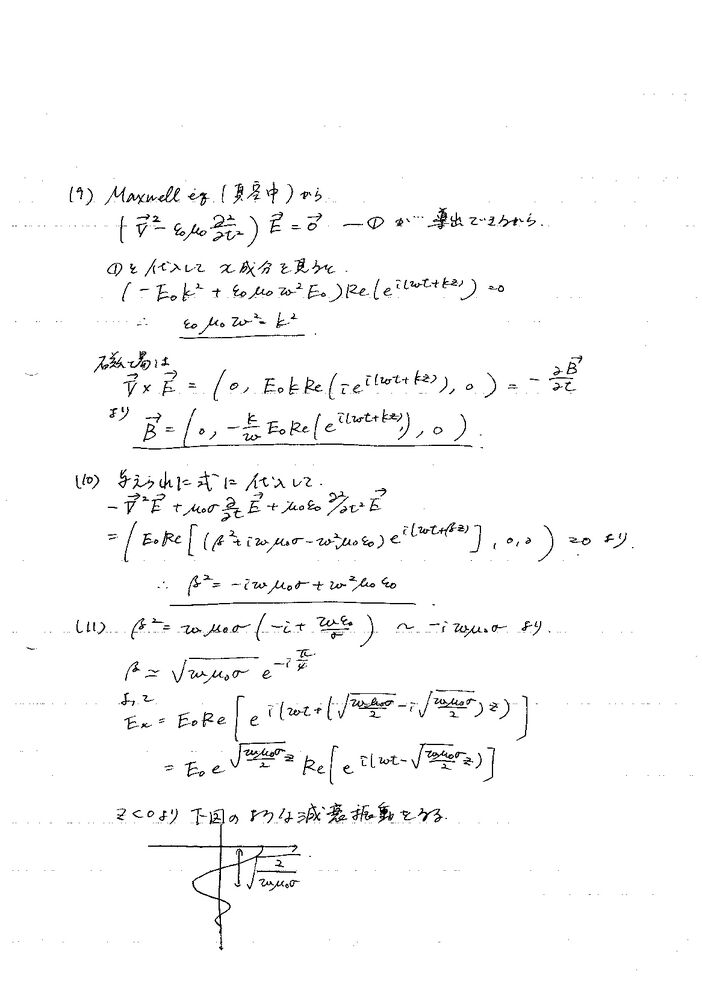 (9) Maxwell eq (真空中) から
(∇⃗² - ε₀μ₀ ∂²/∂t²) E⃗ = 0⃗ —① が 導出できるから.
①を代入して x成分を見ると.
(-E₀k² + ε₀μ₀ω²E₀)Re(e^{i(ωt+kz)}) = 0
∴ ε₀μ₀ω² = k²
磁場は
∇⃗×E⃗ = (0, E₀kRe(ie^{i(ωt+kz)}), 0) = -∂B⃗/∂t
より B⃗ = (0, -k/ω E₀Re(e^{i(ωt+kz)}), 0).
(10) 与えられた式に代入して.
-∇⃗²E⃗ + μ₀σ ∂/∂t E⃗ + μ₀ε₀ ∂²/∂t² E⃗
= (E₀Re[(β²+iωμ₀σ-ω²μ₀ε₀)e^{i(ωt+βz)}], 0, 0) = 0 より.
∴ β² = -iωμ₀σ + ω²μ₀ε₀
(11) β² = ωμ₀σ(-i + ωε₀/σ) ~ -iωμ₀σ より.
β ≃ √(ωμ₀σ) e^{-iπ/4}
よって
Eₓ = E₀Re[e^{i(ωt+(√(ωμ₀σ/2)-i√(ωμ₀σ/2))z)}]
= E₀e^{√(ωμ₀σ/2)z} Re[e^{i(ωt-√(ωμ₀σ/2)z)}]
z<0より 下図のような減衰振動をする.
√(2/ωμ₀σ)